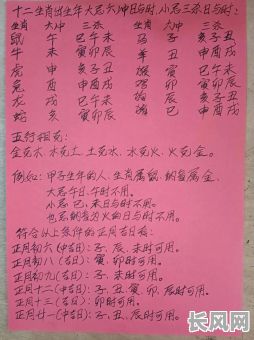 十二生肖出生年大忌六冲日与时,小忌三杀日与时:
生肖 六冲 三杀 生肖 六冲 三杀
鼠 午 巳午未 马 子 亥子丑
牛 未 寅卯辰 羊 丑 申酉戌
虎 申 亥子丑 猴 寅
兔 酉 申酉戌 鸡 卯 寅卯辰
龙 戌 巳午未 狗 辰 亥子丑
蛇 亥 寅卯辰 猪 巳 申酉戌
五行相克:
金克木、木克土、土克水、水克火、火克金。
例如:甲子生年的人、生肖属鼠、纳音属金、
大忌午日、午时不用。
小忌巳、未日与时不用。
也忌纳音为火的日与时不用。
符合以上条件的正月吉日有:
正月初六(中吉日):子、辰、未时可用。
正月初八(吉日):寅、卯时可用。
正月初九(吉日):子、未时可用。
正月十二(中吉日):子、丑、寅、卯、辰时可用。
正月十三(吉日):卯时可用。
正月廿一(中吉日):子、卯、辰时可用。
长风网